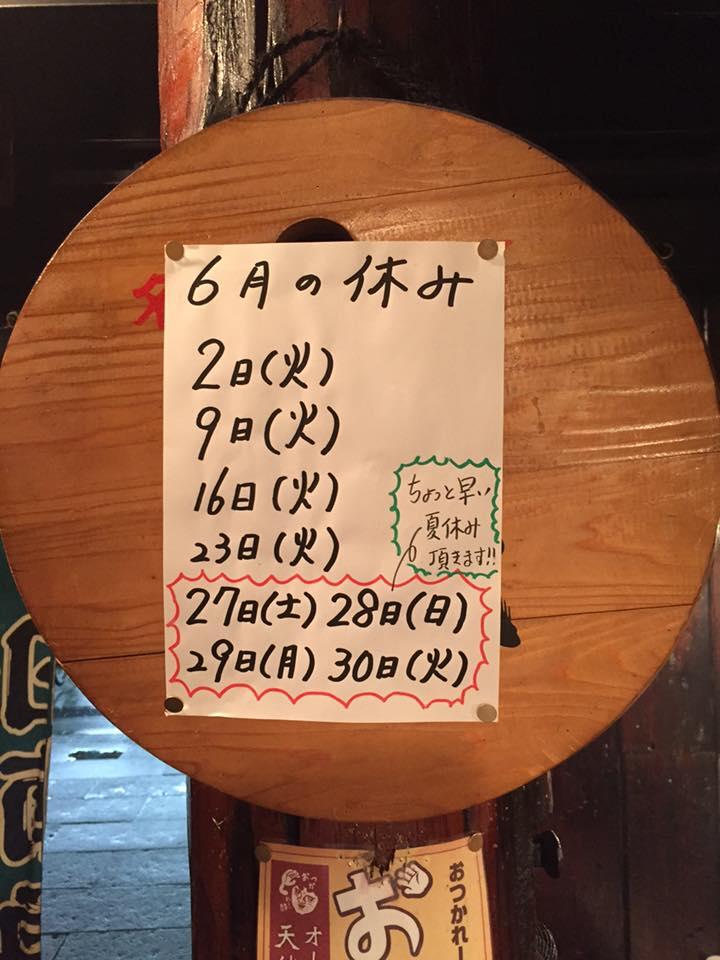 6月の休み
2日(火)
9日(火)
16日(火)
23日(火)
ちょっと早い
夏休み
頂きます!!
27日(土) 28日(日)
29日(月) 30日(火)
おつかれー
お
オー
天